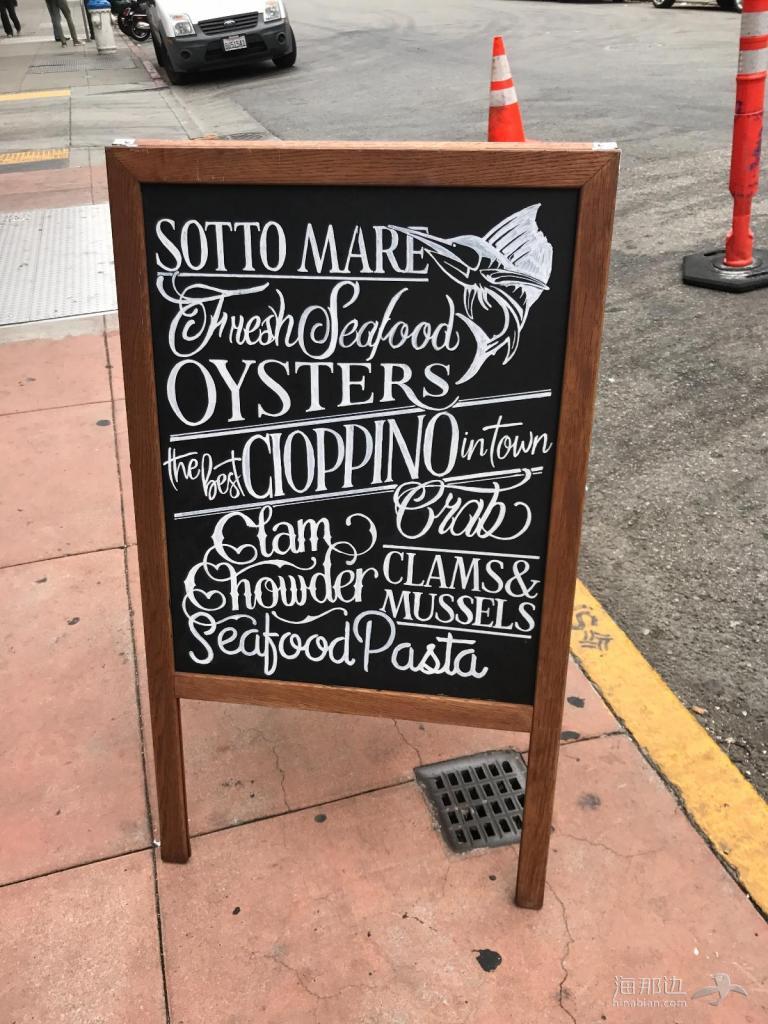 SOTTO MARE
Fresh Seafood
OYSTERS
the best CIOPPINO in town
Crab
Clam
Chowder
CLAMS &
MUSSELS
Seafood Pasta
海那边
hinabian.com